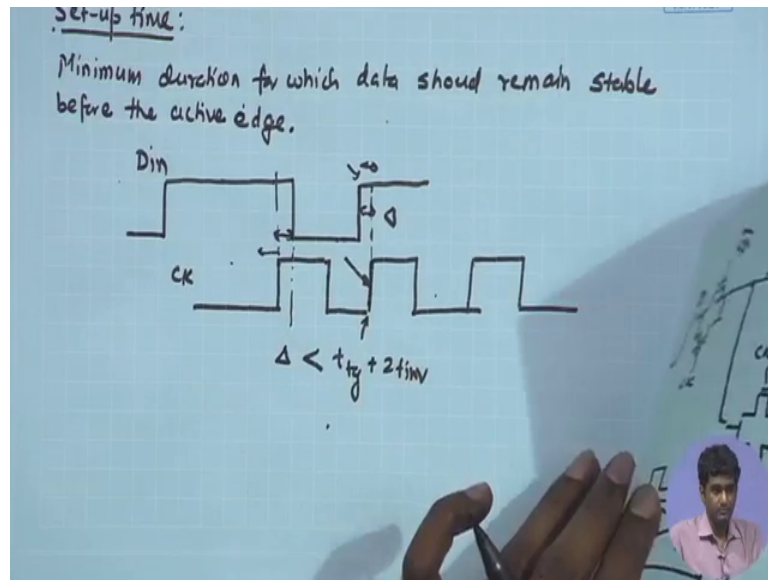 Set-up time:
Minimum duration for which data shoud remain stable
before the active edge.
Din
Δ
CK
Δ < t_tg + 2tinv